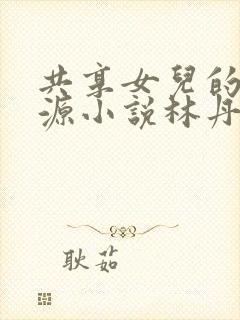 共享女兒的
源小說林丹
耿茹